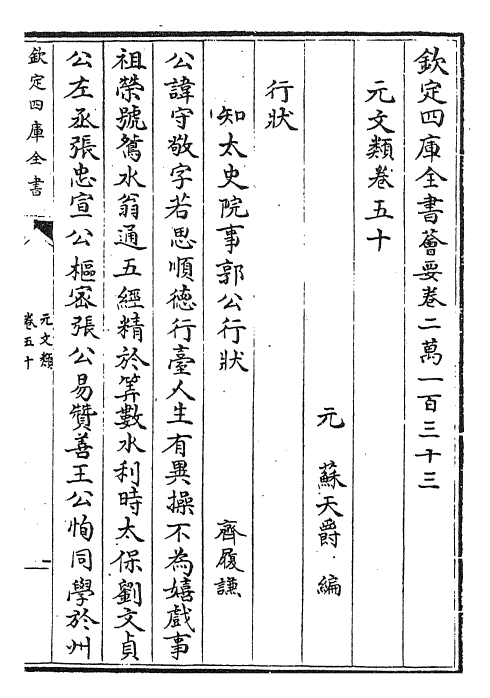 欽定四庫全書薈要卷二萬一百三十三
元文類卷五十
元　蘇天爵　編
行狀
知太史院事郭公行狀　齊履謙
公諱守敬字若思順德行臺人生有異操不為嬉戲事
祖榮號鴛水翁通五經精於筭數水利時太保劉文貞
公左丞張忠宣公樞密張公易贊善王公恂同學於州
欽定四庫全書
元文類
卷五十
一